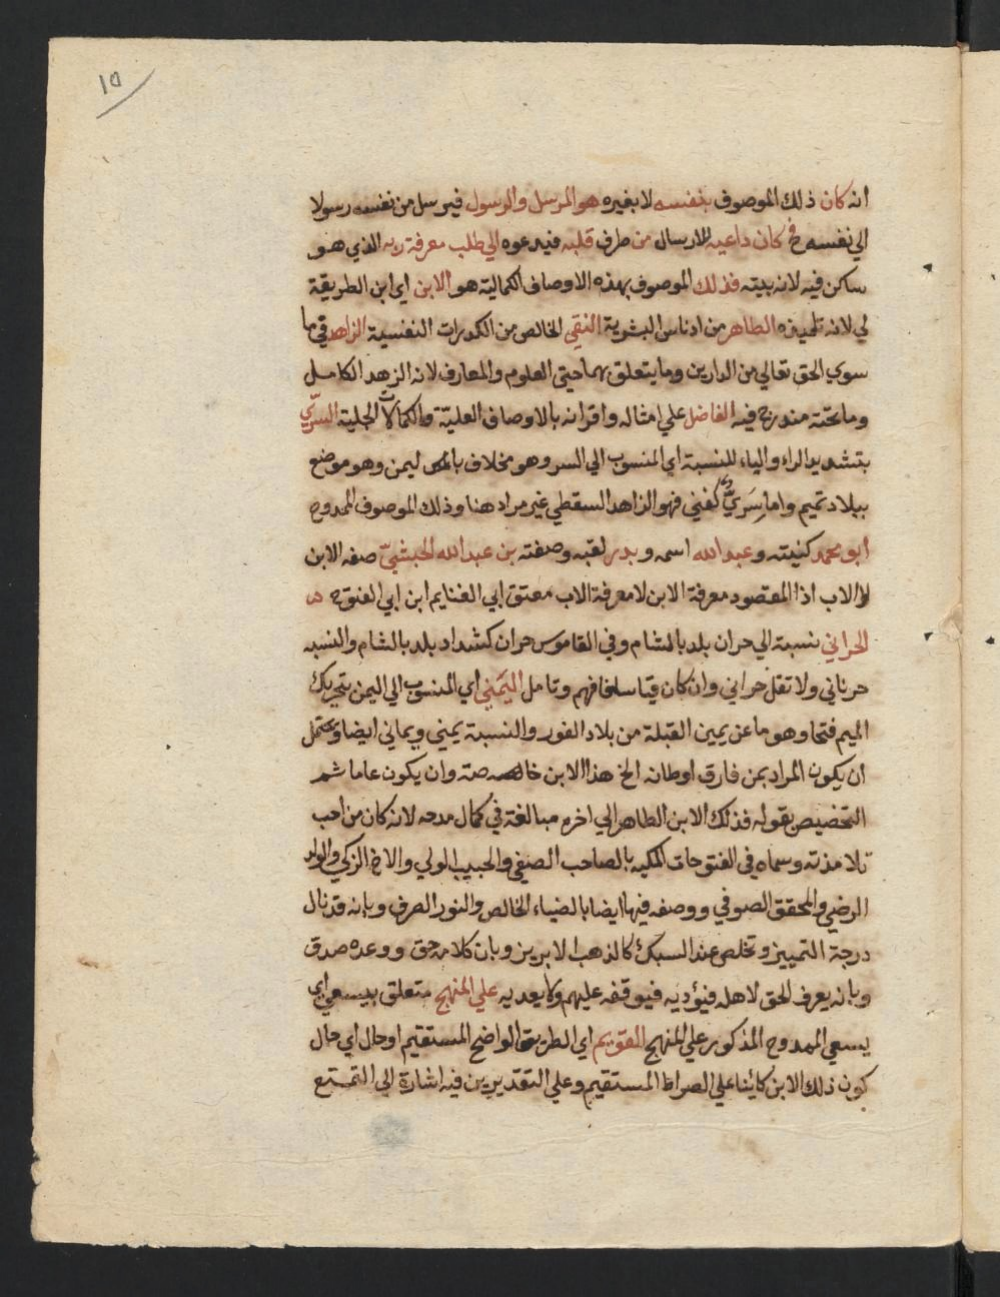 ١٥
انه كان ذلك الموصوف بنفسه لا بغيره هو المرسل والرسول فيرسل من نفسه رسولا
الي نفسه خ كان داعيه للارسال من طرف قلبه فيدعوه الي طلب معرفة ربه الذي هو
ساكن فيه لانه بيته فذلك الموصوف بهذه الاوصاف الكمالية هو الابن اي ابن الطريقة
لي لانه تلميذه الطاهر من ادناس البشرية النقي الخالص من الكدرات النفسية الزاهد في ما
سوي الحق تعالي من الدارين وما يتعلق بهما حتي العلوم والمعارف لانه الزهد الكامل
وما تحته مندرج فيه الفاضل علي امثاله واقرانه بالاوصاف العلية والكمالات الجلية السري
بتشديد الراء والياء للنسبة اي المنسوب الي السر وهو مخلاف باليمن وهو موضع
ببلاد تميم واما سري كغني فهو الزاهد السقطي غير مراد هنا وذلك الموصوف الممدوح
ابو محمد كنيته وعبد الله اسمه وبدر لقبه وصفته بن عبد الله الحبشي صفه الابن
لا الاب اذ المقصود معرفة الابن لا معرفة الاب معتق ابي الغنايم ابن ابي الفتوح
الحراني نسبة الي حران بلد بالشام وفي القاموس حران كشداد بلد بالشام والنسبه
حرناني ولا تقل حراني وان كان قياسا فافهم وتامل اليمني اي المنسوب الي اليمن بتحريك
الميم فتحا وهو ما عن يمين القبلة من بلاد الغور والنسبة يمني ويماني ايضا ويحتمل
ان يكون المراد بمن فارق اوطانه الخ هذا الابن خاصة وان يكون عاما ثم
التخصيص بقوله فذلك الابن الطاهر الي اخره مبالغة في كمال مدحه لانه كان من احب
تلامذته وسماه في الفتوحات المكيه بالصاحب الصفي والحبيب الولي والاخ الزكي والولد
الرضي والمحقق الصوفي ووصفه فيها ايضا بالضياء الخالص والنور الصرف وبانه قد نال
درجة التمييز وتخلص عند السبك كالذهب الابريز وبان كلامه حق ووعده صدق
وبانه يعرف الحق لاهله فيؤديه فيوقفه عليهم ولا يعديه علي المنهج متعلق بيسعي اي
يسعي الممدوح المذكور علي المنهج القويم اي الطريق الواضح المستقيم او حال اي حال
كون ذلك الابن كائنا علي الصراط المستقيم وعلي التقديرين فيه اشارة الي التمتع